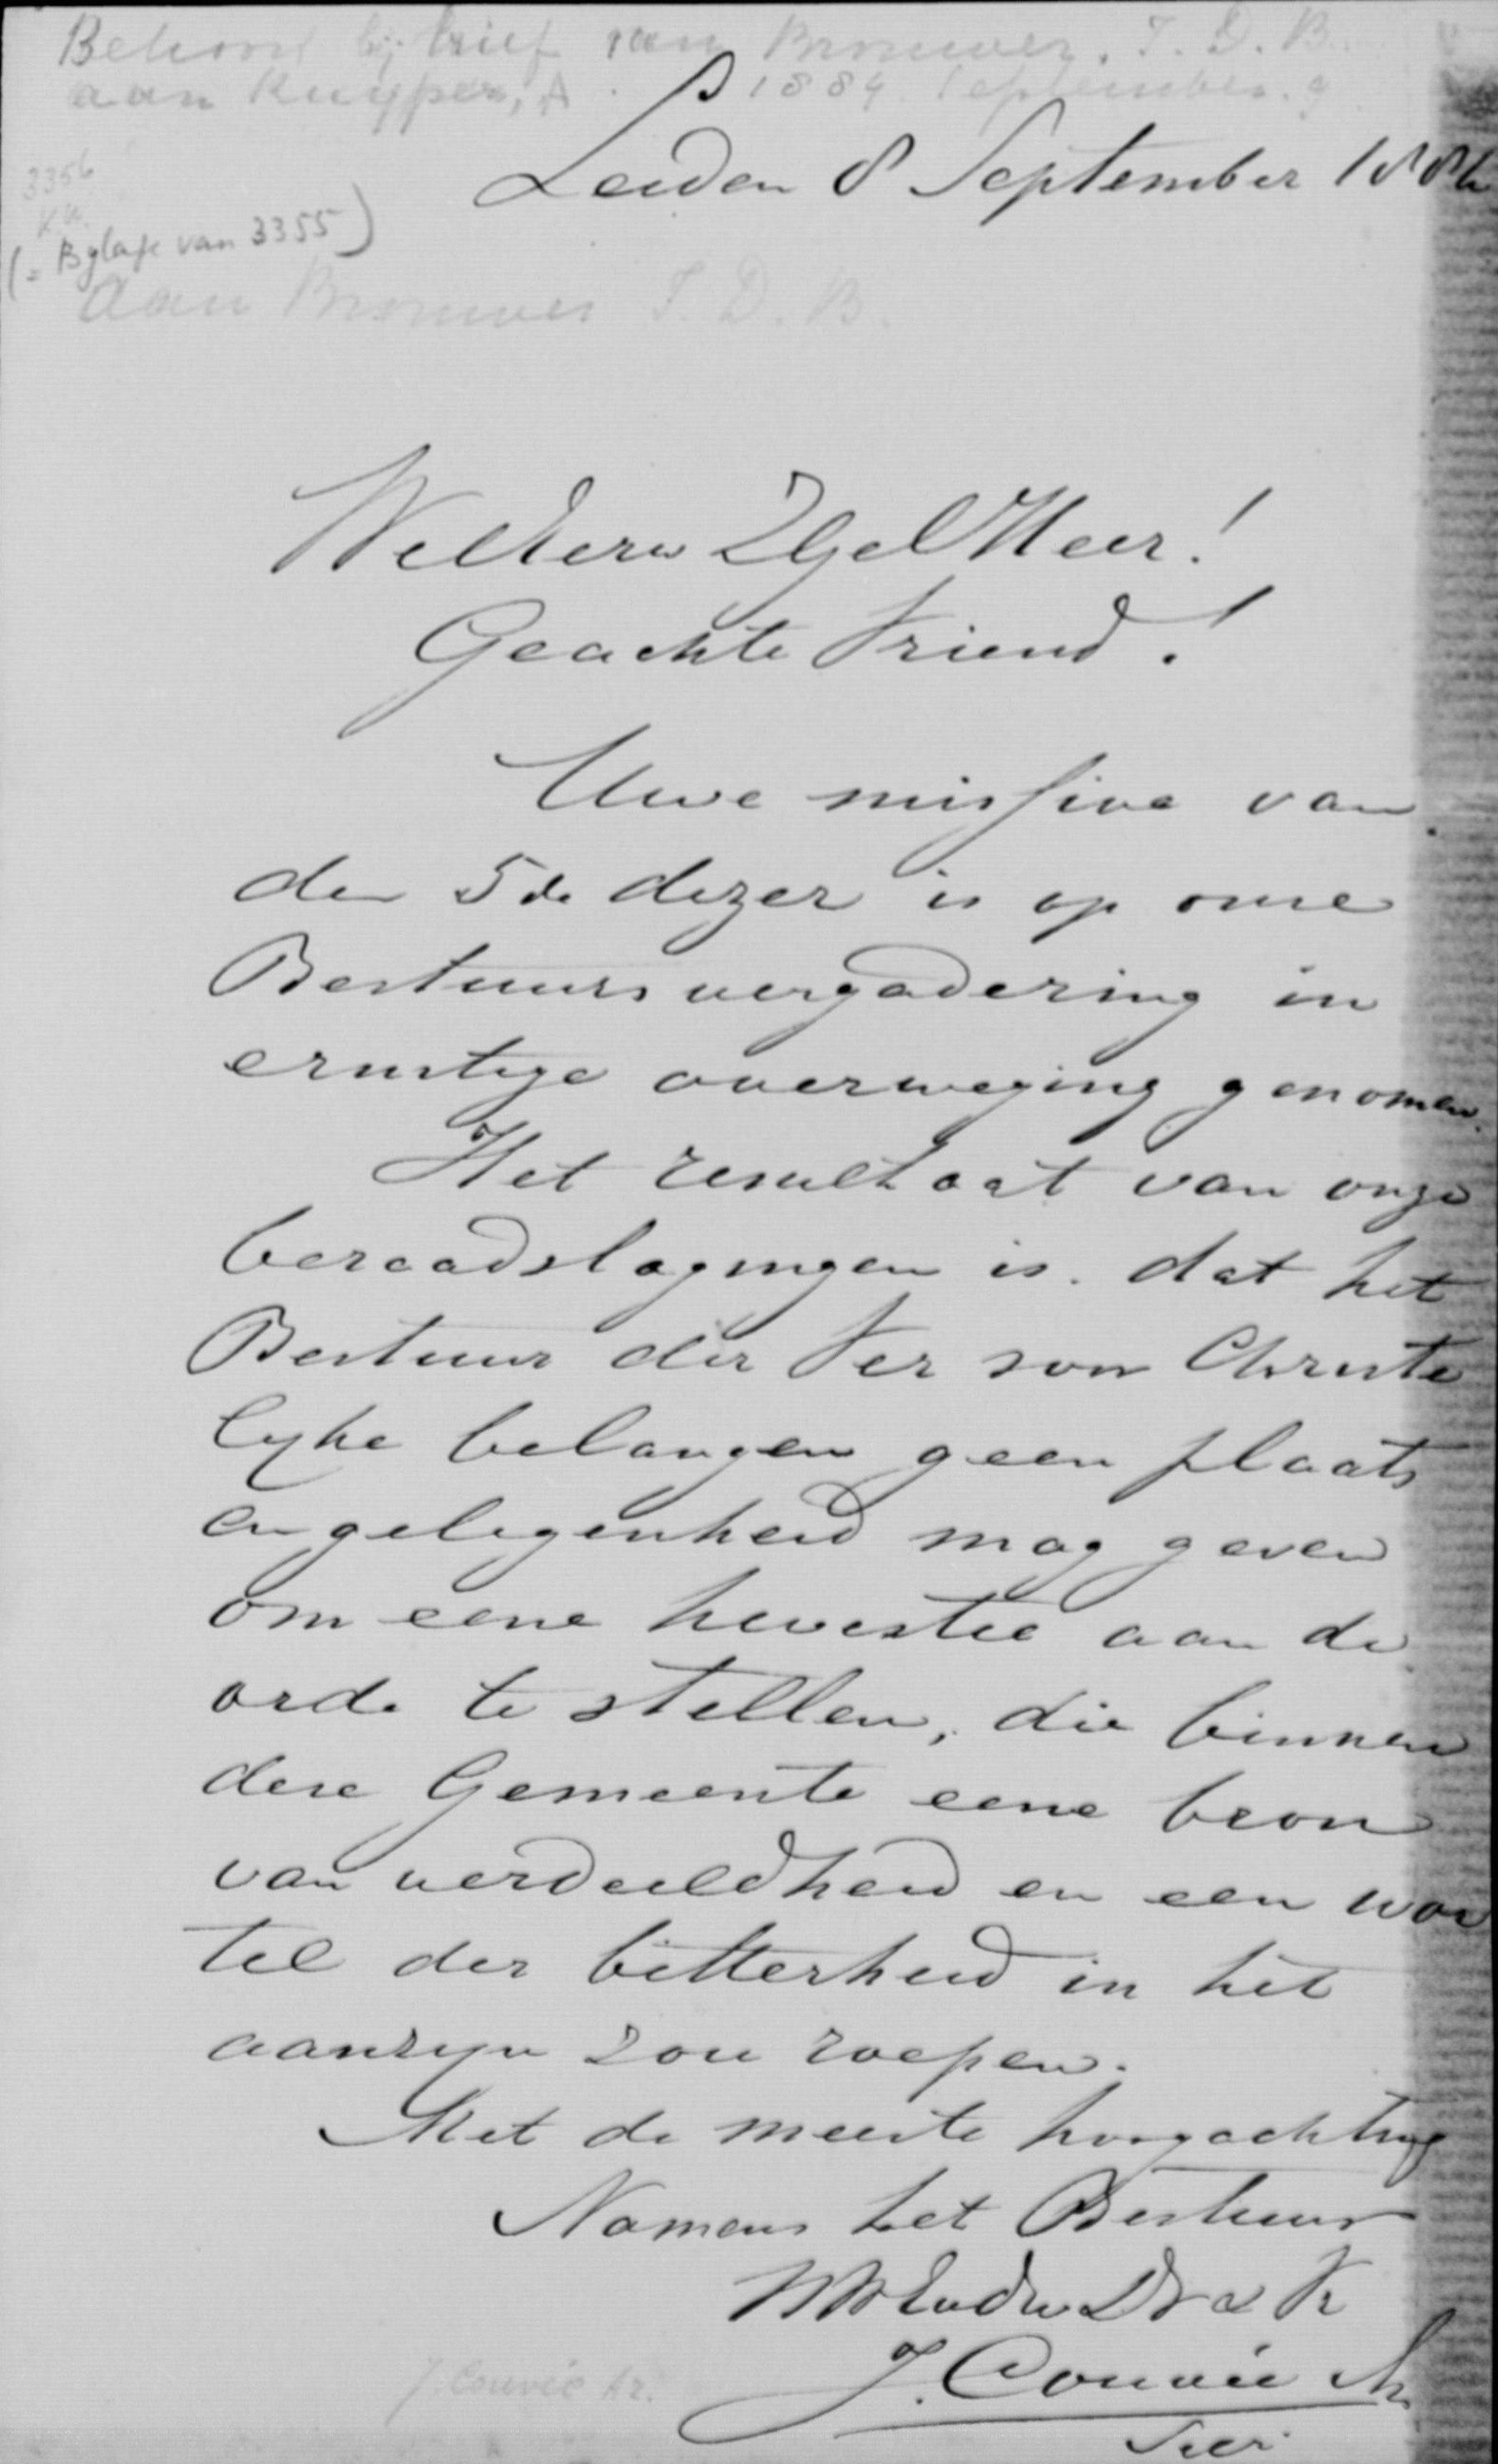 Behoort bij brief van Brouwer, T. D. B.
aan Kuyper, A. 1884 September 9
Leiden 8 September 188
3356
(= Bylage van 3355)
Aan Brouwer T. D. B.
WelEerw ZGel Heer!
Geachte Vriend!
Uwe missive van
den 5de dezer is op onse
Bestuursvergadering in
ernstige overweging genomen.
Het resultaat van onze
beraadslagingen is dat het
Bestuur der Ver voor Christe
lyke belangen geen plaats
en gelegenheid mag geven
om eene kwestie aan de
orde te stellen, die binnen
dese Gemeente eene bron
van verdeeldheid en een wor
tel der bitterheid in het
aanzyn zou roepen.
Met de meeste hoogachting
Namens het Bestuur
J. Couvée Az
J. Couvée Az. Secr